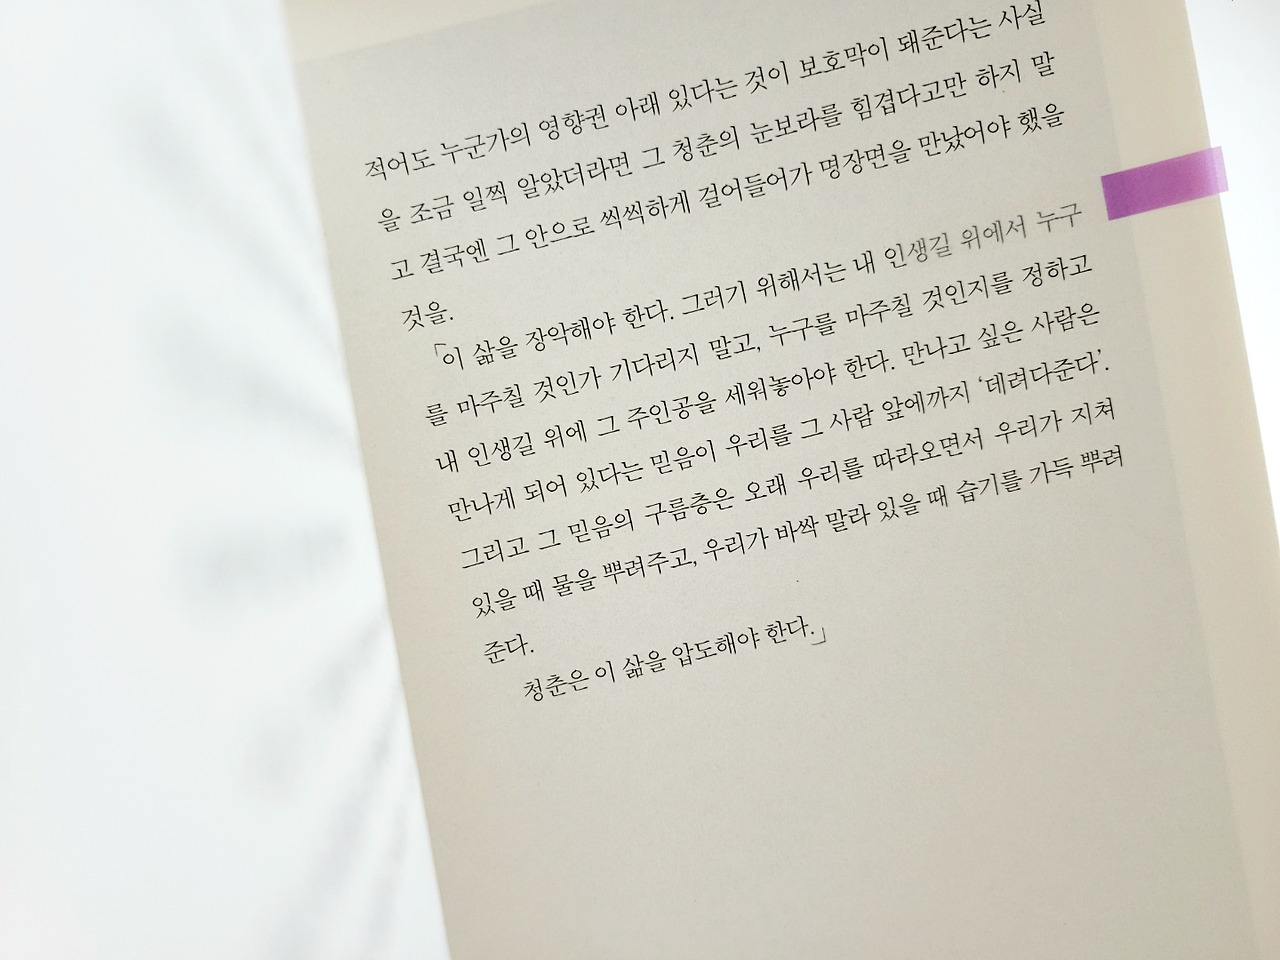 적어도 누군가의 영향권 아래 있다는 것이 보호막이 돼준다는 사실
을 조금 일찍 알았더라면 그 청춘의 눈보라를 힘겹다고만 하지 말
고 결국엔 그 안으로 씩씩하게 걸어들어가 명장면을 만났어야 했을
것을.
「이 삶을 장악해야 한다. 그러기 위해서는 내 인생길 위에서 누구
를 마주칠 것인가 기다리지 말고, 누구를 마주칠 것인지를 정하고
내 인생길 위에 그 주인공을 세워놓아야 한다. 만나고 싶은 사람은
만나게 되어 있다는 믿음이 우리를 그 사람 앞에까지 ‘데려다준다’.
그리고 그 믿음의 구름층은 오래 우리를 따라오면서 우리가 지쳐
있을 때 물을 뿌려주고, 우리가 바싹 말라 있을 때 습기를 가득 뿌려
준다.
청춘은 이 삶을 압도해야 한다.」